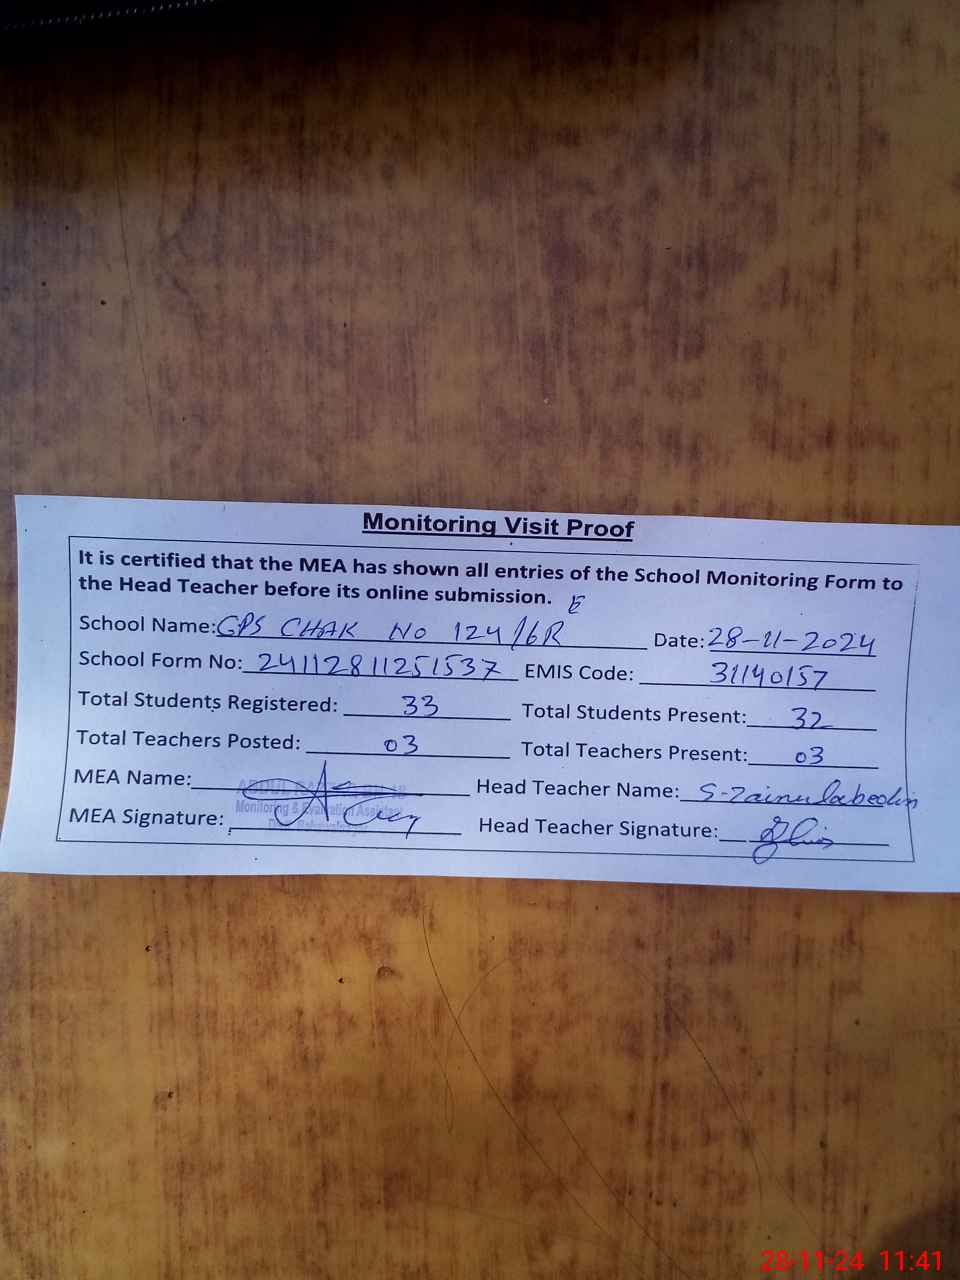 Monitoring Visit Proof
It is certified that the MEA has shown all entries of the School Monitoring Form to
the Head Teacher before its online submission.
E
School Name: GPS CHAK No 124/6R Date: 28-11-2024
School Form No: 24112811251537 EMIS Code: 31140157
Total Students Registered: 33 Total Students Present: 32
Total Teachers Posted: 03 Total Teachers Present: 03
MEA Name: ABDUL Head Teacher Name: S-Zainulabedin
Monitoring & Evaluation Assistant
MEA Signature: Head Teacher Signature:
28-11-24 11:41